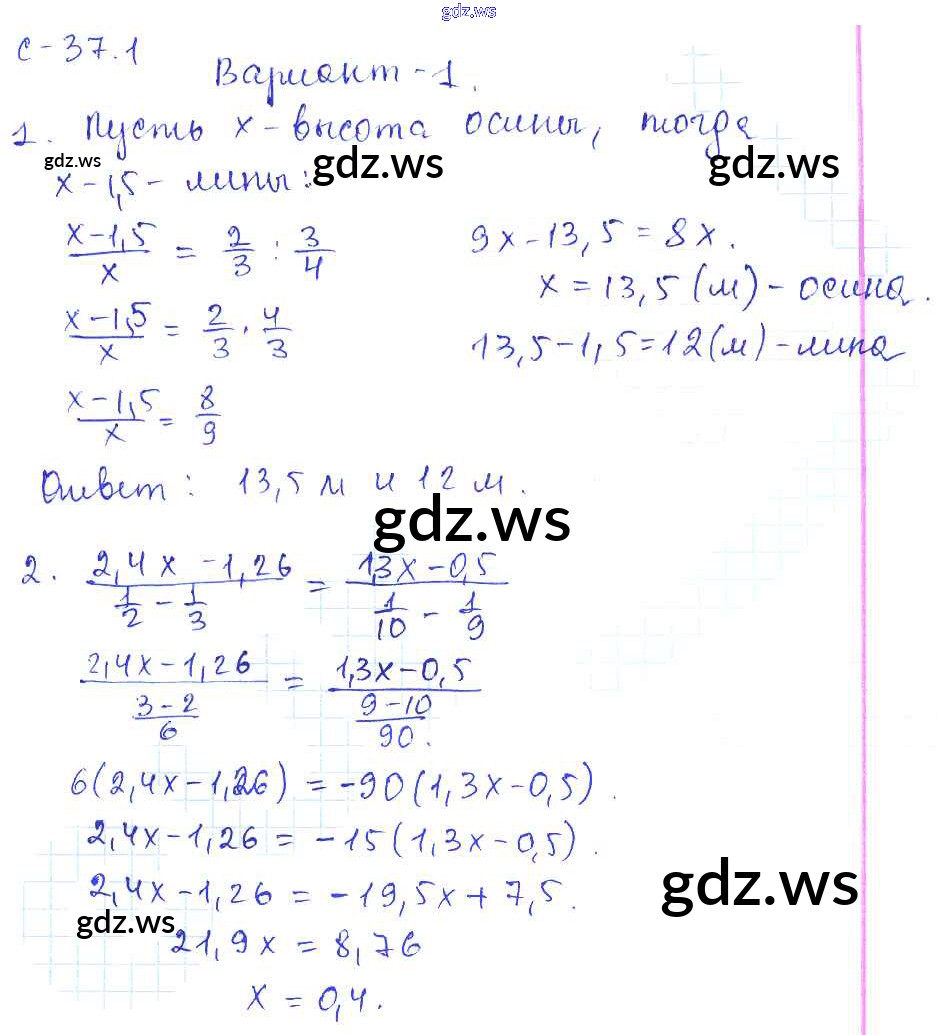 gdz.ws
С-37.1
Вариант-1.
1. Пусть x - высота осины, тогда
gdz.ws gdz.ws gdz.ws
x-1,5 - липы:
(x-1,5)/x = 2/3 : 3/4
(x-1,5)/x = 2/3 · 4/3
(x-1,5)/x = 8/9
9x-13,5=8x.
x=13,5(м)-осина.
13,5-1,5=12(м)-липа
Ответ: 13,5 м и 12 м.
gdz.ws
2. (2,4x-1,26)/(1/2 - 1/3) = (1,3x-0,5)/(1/10 - 1/9)
(2,4x-1,26)/((3-2)/6) = (1,3x-0,5)/((9-10)/90).
6(2,4x-1,26) = -90(1,3x-0,5).
2,4x-1,26 = -15(1,3x-0,5).
2,4x-1,26 = -19,5x+7,5.
gdz.ws gdz.ws
21,9x = 8,76
x = 0,4.